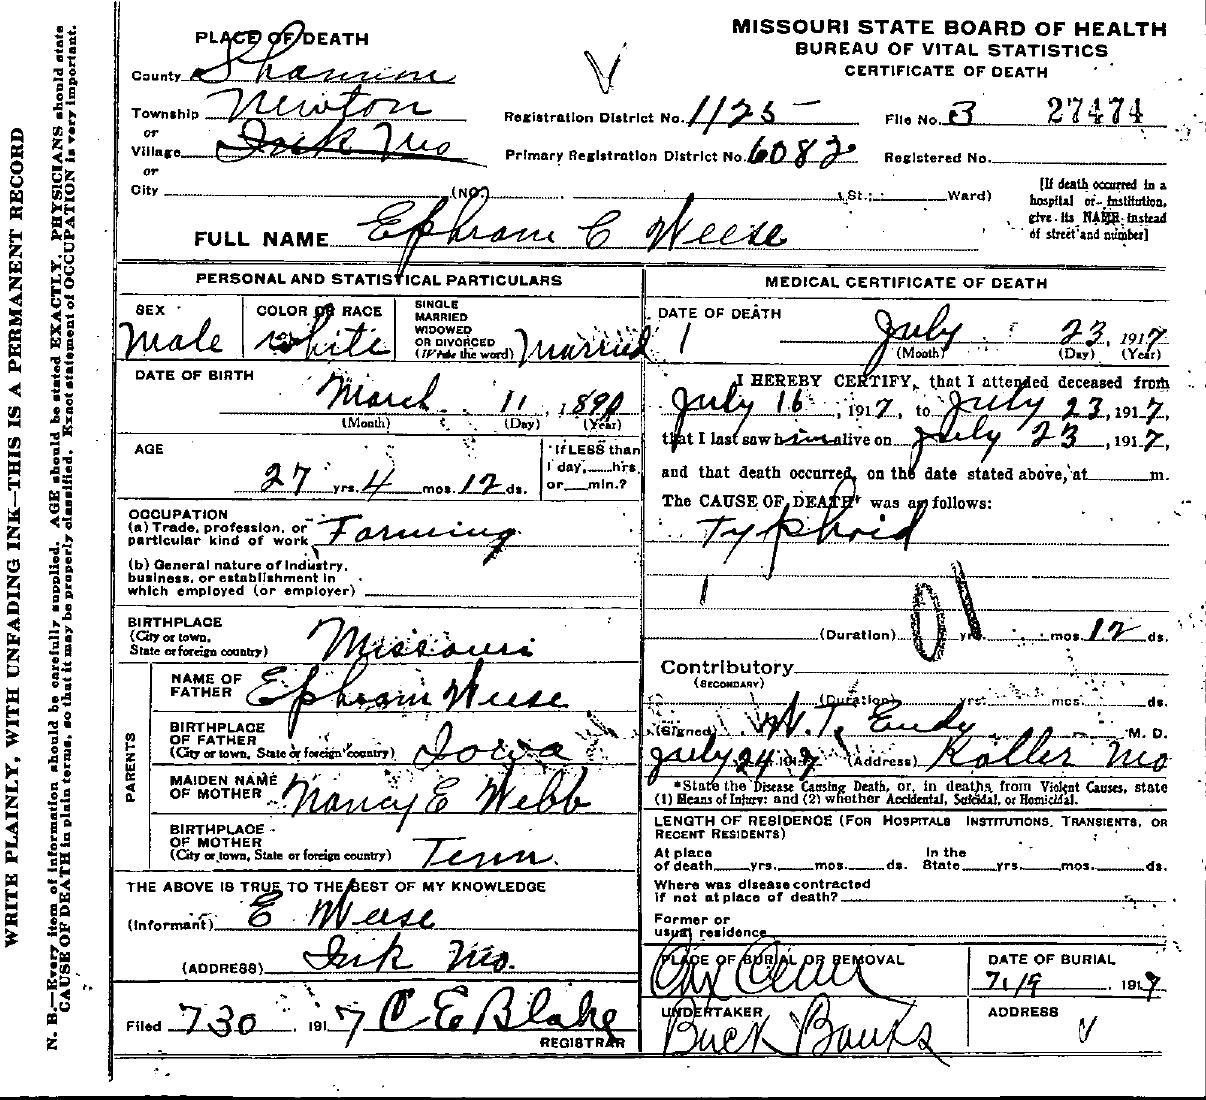 WRITE PLAINLY, WITH UNFADING INK—THIS IS A PERMANENT RECORD
N. B.—Every item of information should be carefully supplied. AGE should be stated EXACTLY. PHYSICIANS should state
CAUSE OF DEATH in plain terms, so that it may be properly classified. Exact statement of OCCUPATION is very important.
MISSOURI STATE BOARD OF HEALTH
BUREAU OF VITAL STATISTICS
CERTIFICATE OF DEATH
PLACE OF DEATH
County Shannon
Township Newton
or
Village Ink Mo
or
City (NO. St.; Ward)
Registration District No. 1125
File No. 3 27474
Primary Registration District No. 6082
Registered No.
[If death occurred in a
hospital or institution,
give its NAME instead
of street and number]
FULL NAME Ephram C Weese
PERSONAL AND STATISTICAL PARTICULARS
SEX
Male
COLOR OR RACE
White
SINGLE
MARRIED
WIDOWED
OR DIVORCED
(Write the word) Married
DATE OF BIRTH
March 11, 1890
(Month) (Day) (Year)
AGE
27 yrs. 4 mos. 12 ds.
If LESS than
1 day,___hrs.
or___min.?
OCCUPATION
(a) Trade, profession, or
particular kind of work Farming
(b) General nature of industry,
business, or establishment in
which employed (or employer)
BIRTHPLACE
(City or town,
State or foreign country) Missouri
PARENTS
NAME OF
FATHER Ephram Weese
BIRTHPLACE
OF FATHER
(City or town, State or foreign country) Iowa
MAIDEN NAME
OF MOTHER Nancy E Webb
BIRTHPLACE
OF MOTHER
(City or town, State or foreign country) Tenn.
THE ABOVE IS TRUE TO THE BEST OF MY KNOWLEDGE
(Informant) E Weese
(ADDRESS) Ink Mo.
Filed 7 30, 1917 C E Blake
REGISTRAR
MEDICAL CERTIFICATE OF DEATH
DATE OF DEATH
July 23, 1917
(Month) (Day) (Year)
I HEREBY CERTIFY, that I attended deceased from
July 16, 1917, to July 23, 1917,
that I last saw him alive on July 23, 1917,
and that death occurred, on the date stated above, at m.
The CAUSE OF DEATH* was as follows:
Typhoid
01
(Duration) yrs. mos. 12 ds.
Contributory
(SECONDARY)
(Duration) yrs. mos. ds.
(Signed) W. T. Eudy M. D.
July 24 1917 (Address) Koller Mo
*State the Disease Causing Death, or, in deaths from Violent Causes, state
(1) Means of Injury; and (2) whether Accidental, Suicidal, or Homicidal.
LENGTH OF RESIDENCE (For Hospitals Institutions, Transients, or
Recent Residents)
At place
of death yrs. mos. ds.
In the
State yrs. mos. ds.
Where was disease contracted
if not at place of death?
Former or
usual residence
PLACE OF BURIAL OR REMOVAL
DATE OF BURIAL
, 1917
UNDERTAKER
Buck Banks
ADDRESS